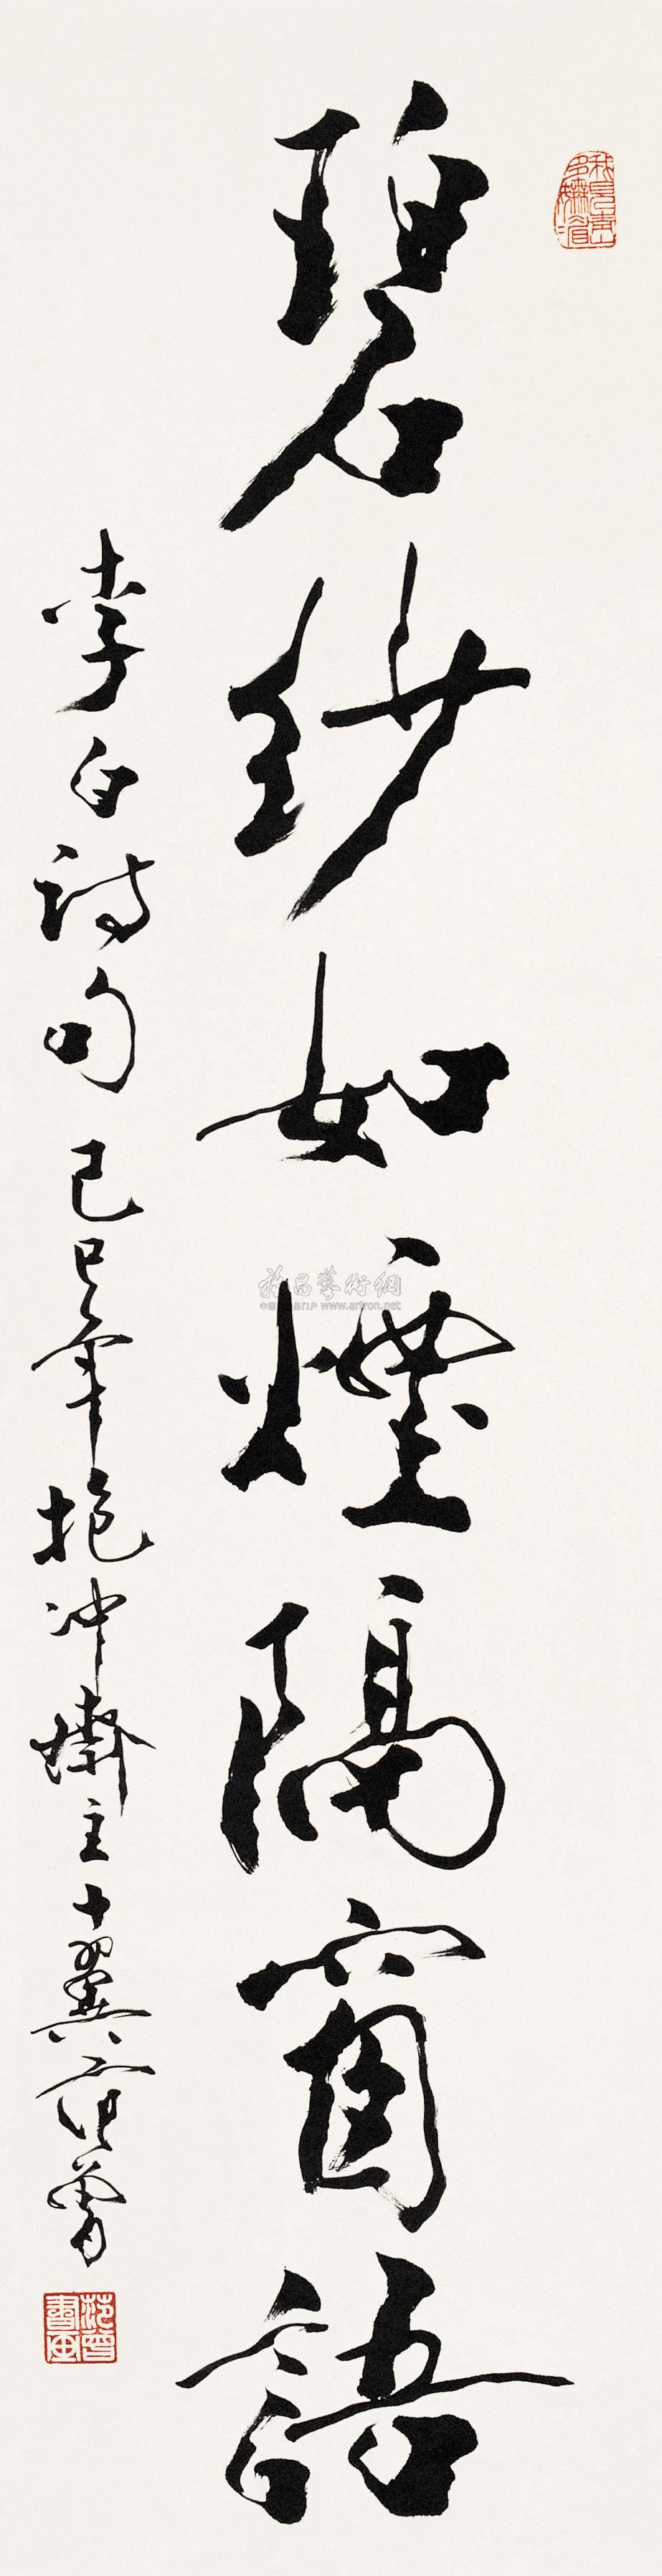 碧紗如煙隔窗語
李白詩句 己巳年 抱冲齋主十翼范曾
范曾書画
雅昌藝術網
www.artron.net